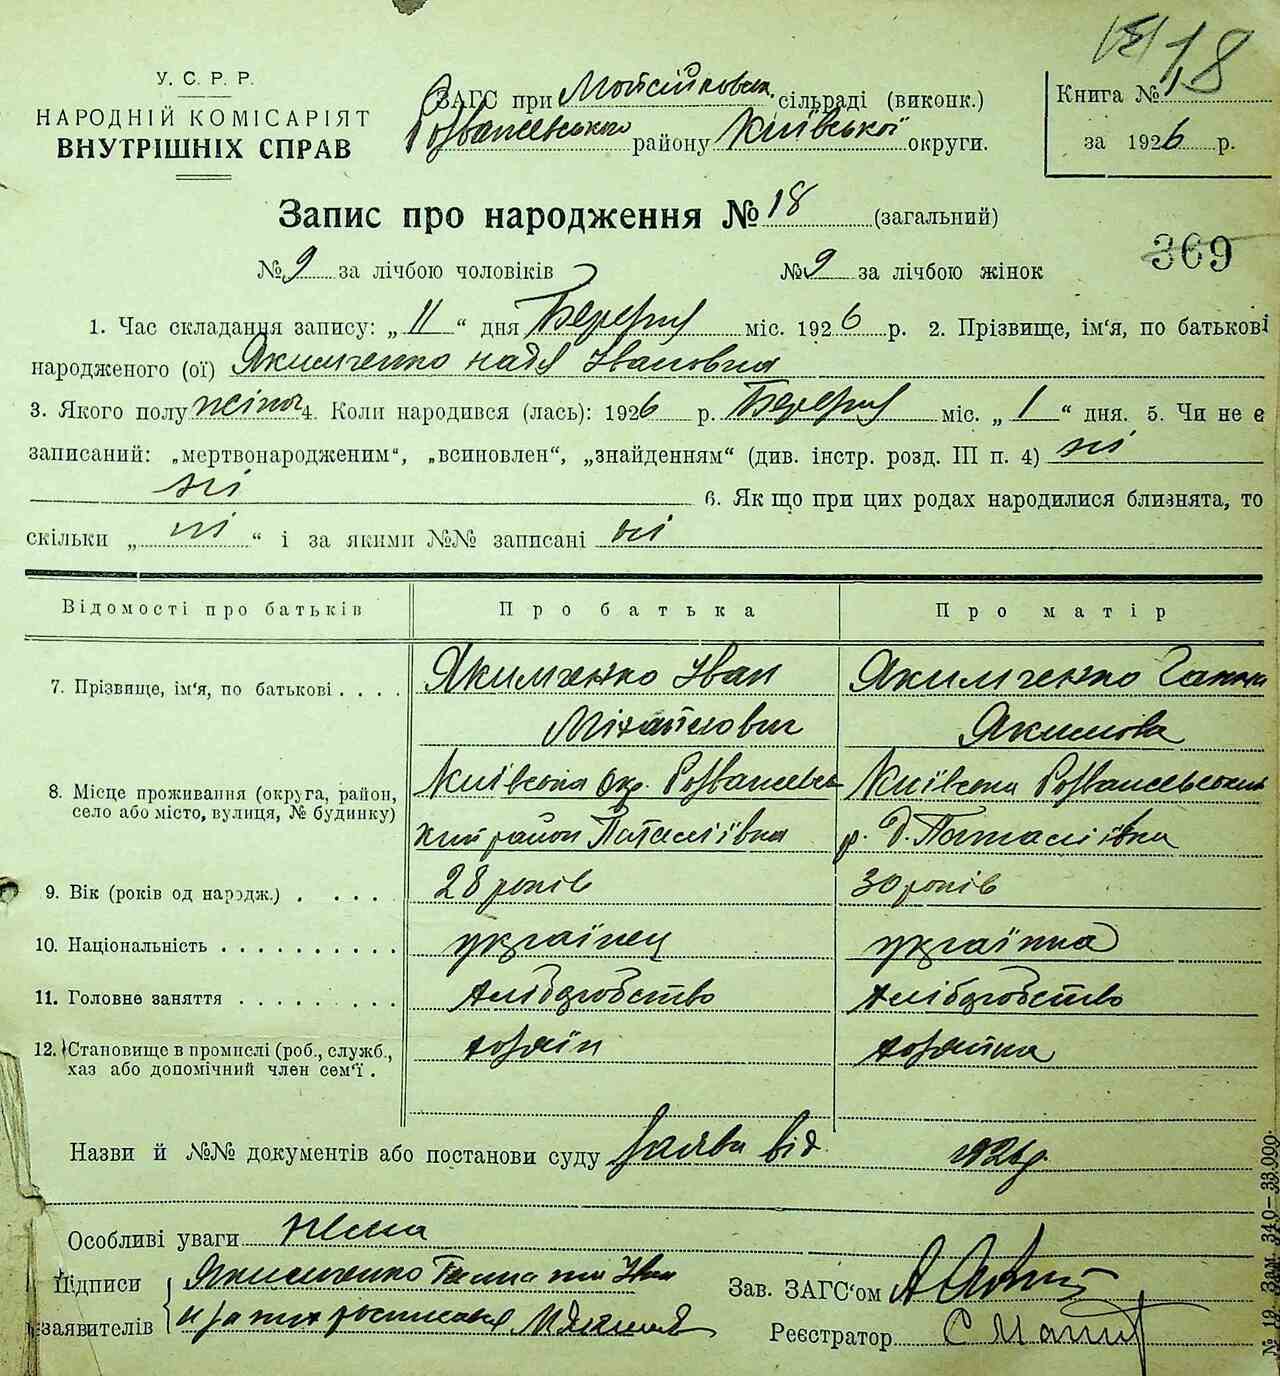 18
У. С. Р. Р.
НАРОДНІЙ КОМІСАРІЯТ
ВНУТРІШНІХ СПРАВ
ЗАГС при Мойсійковск. сільраді (виконк.)
Розважевського району Київської округи.
Книга № 18
за 1926 р.
Запис про народження № 18 (загальний)
№ 9 за лічбою чоловіків № 9 за лічбою жінок
369
1. Час складання запису: „11“ дня Березня міс. 1926 р. 2. Прізвище, ім'я, по батькові
народженого (ої) Якимченко Надя Івановна
3. Якого полу жіноч 4. Коли народився (лась): 1926 р. Березня міс. „1“ дня. 5. Чи не є
записаний: „мертвонародженим“, „всиновлен“, „знайденням“ (див. інстр. розд. III п. 4) ні
ні 6. Як що при цих родах народилися близнята, то
скільки „ ні “ і за якими №№ записані ні
Відомості про батьків Про батька Про матір
7. Прізвище, ім'я, по батькові . . . . Якимченко Іван Якимченко Ганна
Міхайлович Якимова
8. Місце проживання (округа, район, Київська окр. Розважевсь Київська Розважевський
село або місто, вулиця, № будинку) кий район р. д.
9. Вік (років од народж.) . . . . . 28 років 30 років
10. Національність . . . . . . . . . . українец українка
11. Головне заняття . . . . . . . . . хлібозробство хлібозробство
12. Становище в промислі (роб., служб., хозяїн хозяйка
хаз або допомічний член сем'ї .
Назви й №№ документів або постанови суду Заява від 1926р.
Особливі уваги нема
Підписи Якимченко Ганна та Іван
заявителів
Зав. ЗАГС'ом
Реєстратор
№ 19. Зам. 340—33.000.